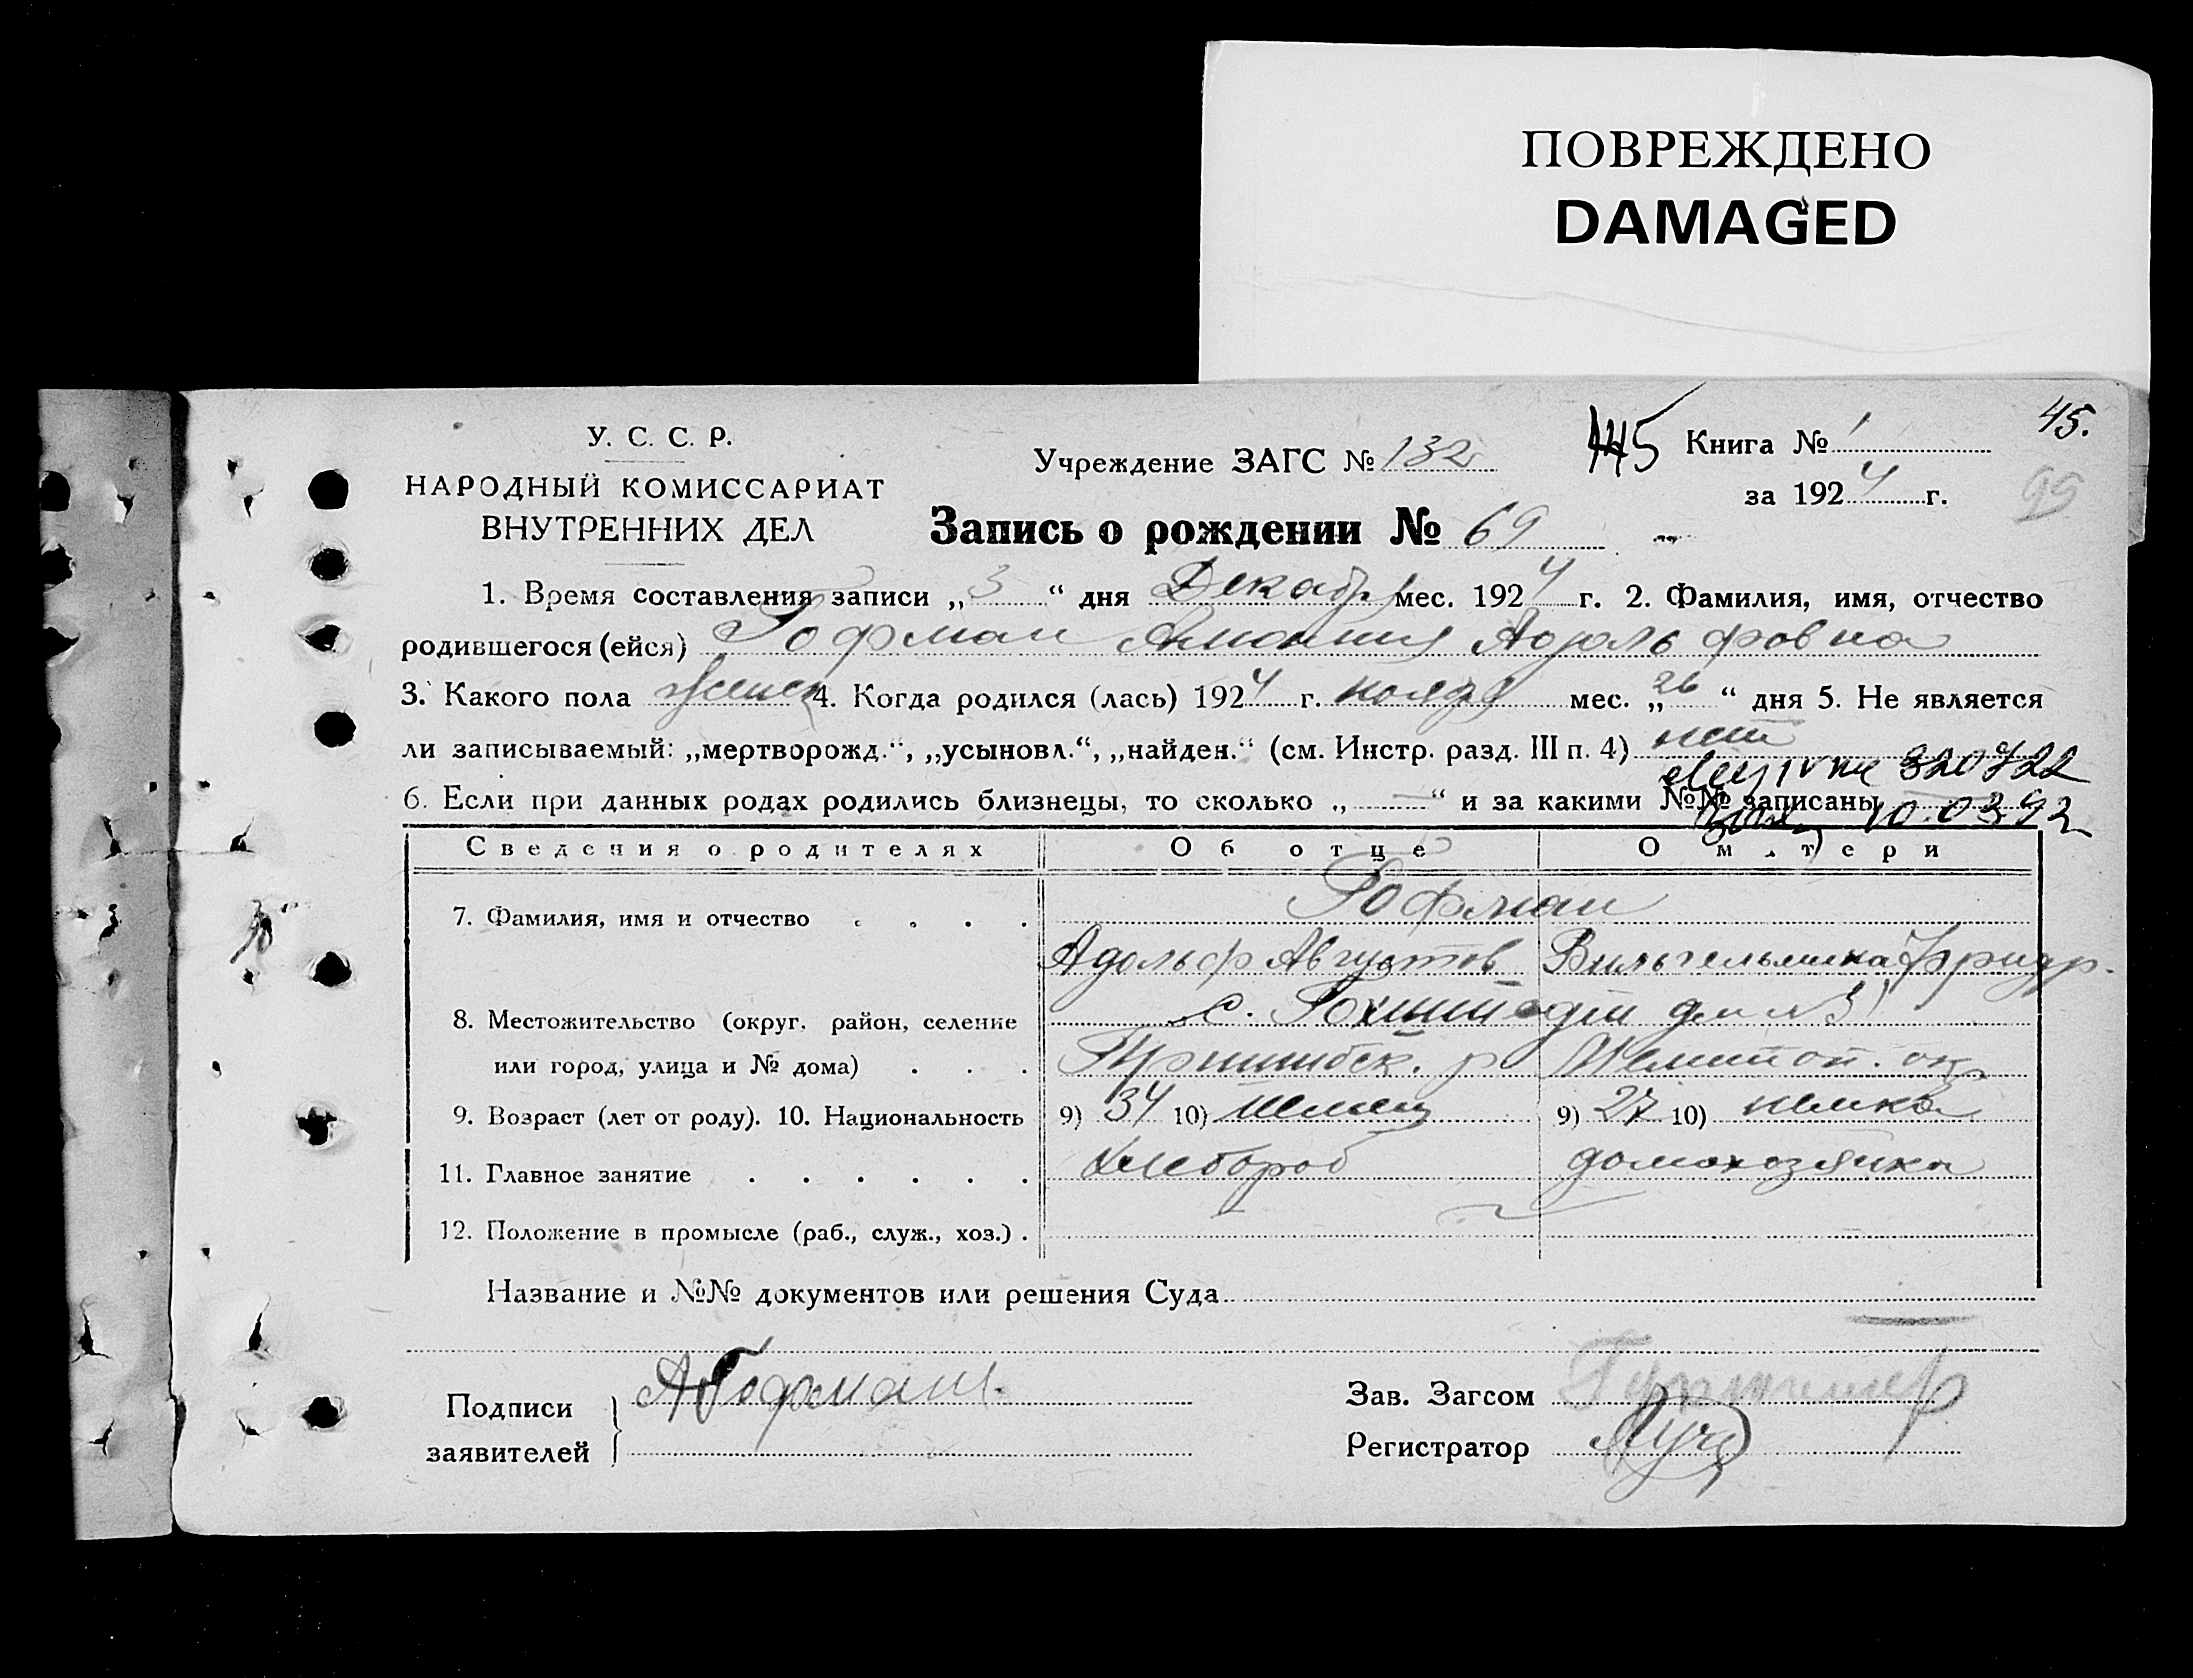 ПОВРЕЖДЕНО
DAMAGED
У. С. С. Р.
НАРОДНЫЙ КОМИССАРИАТ
ВНУТРЕННИХ ДЕЛ
Учреждение ЗАГС № 132
145
Книга № 1
45.
за 1924 г.
95
Запись о рождении № 69
1. Время составления записи „3“ дня Декабря мес. 1924 г. 2. Фамилия, имя, отчество
родившегося (ейся) Гофман Адольфовна
3. Какого пола женск 4. Когда родился (лась) 1924 г. ноября мес. „26“ дня 5. Не является
ли записываемый: „мертворожд.“, „усыновл.“, „найден.“ (см. Инстр. разд. III п. 4) нет
320722
6. Если при данных родах родились близнецы, то сколько „—“ и за какими №№ записаны —
10.03.92
Сведения о родителях Об отце О матери
7. Фамилия, имя и отчество Гофман
Адольф Августов Вильгельмина Фридр.
8. Местожительство (округ, район, селение с. Гохштедт дом №
или город, улица и № дома) Пришибск. р Мелитоп. окр
9. Возраст (лет от роду). 10. Национальность 9) 34 10) немец 9) 27 10) немка
11. Главное занятие хлебороб домохозяйка
12. Положение в промысле (раб., служ., хоз.)
Название и №№ документов или решения Суда
Подписи заявителей А Гофман.
Зав. Загсом
Регистратор